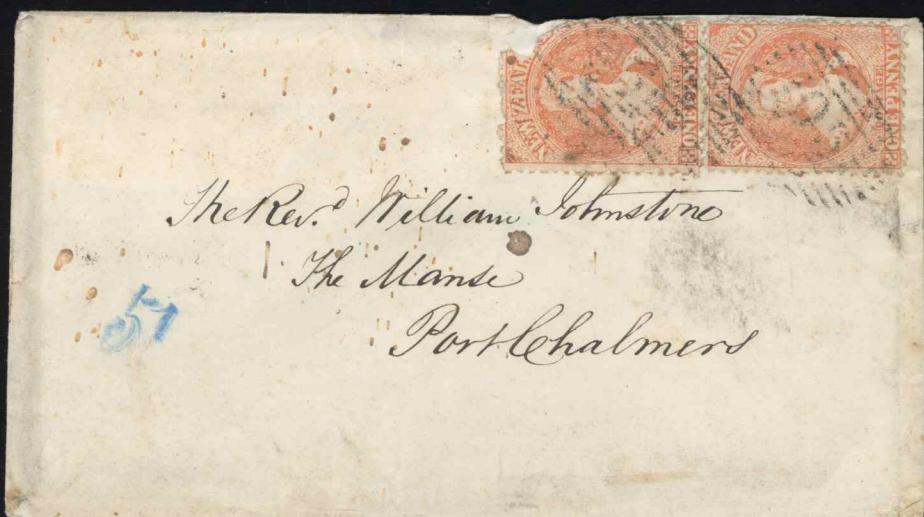 NEW ZEAL
ONE PENNY
NEW ZEALAND
ONE PENNY
The Rev.d William Johnstone
The Manse
Port Chalmers
51